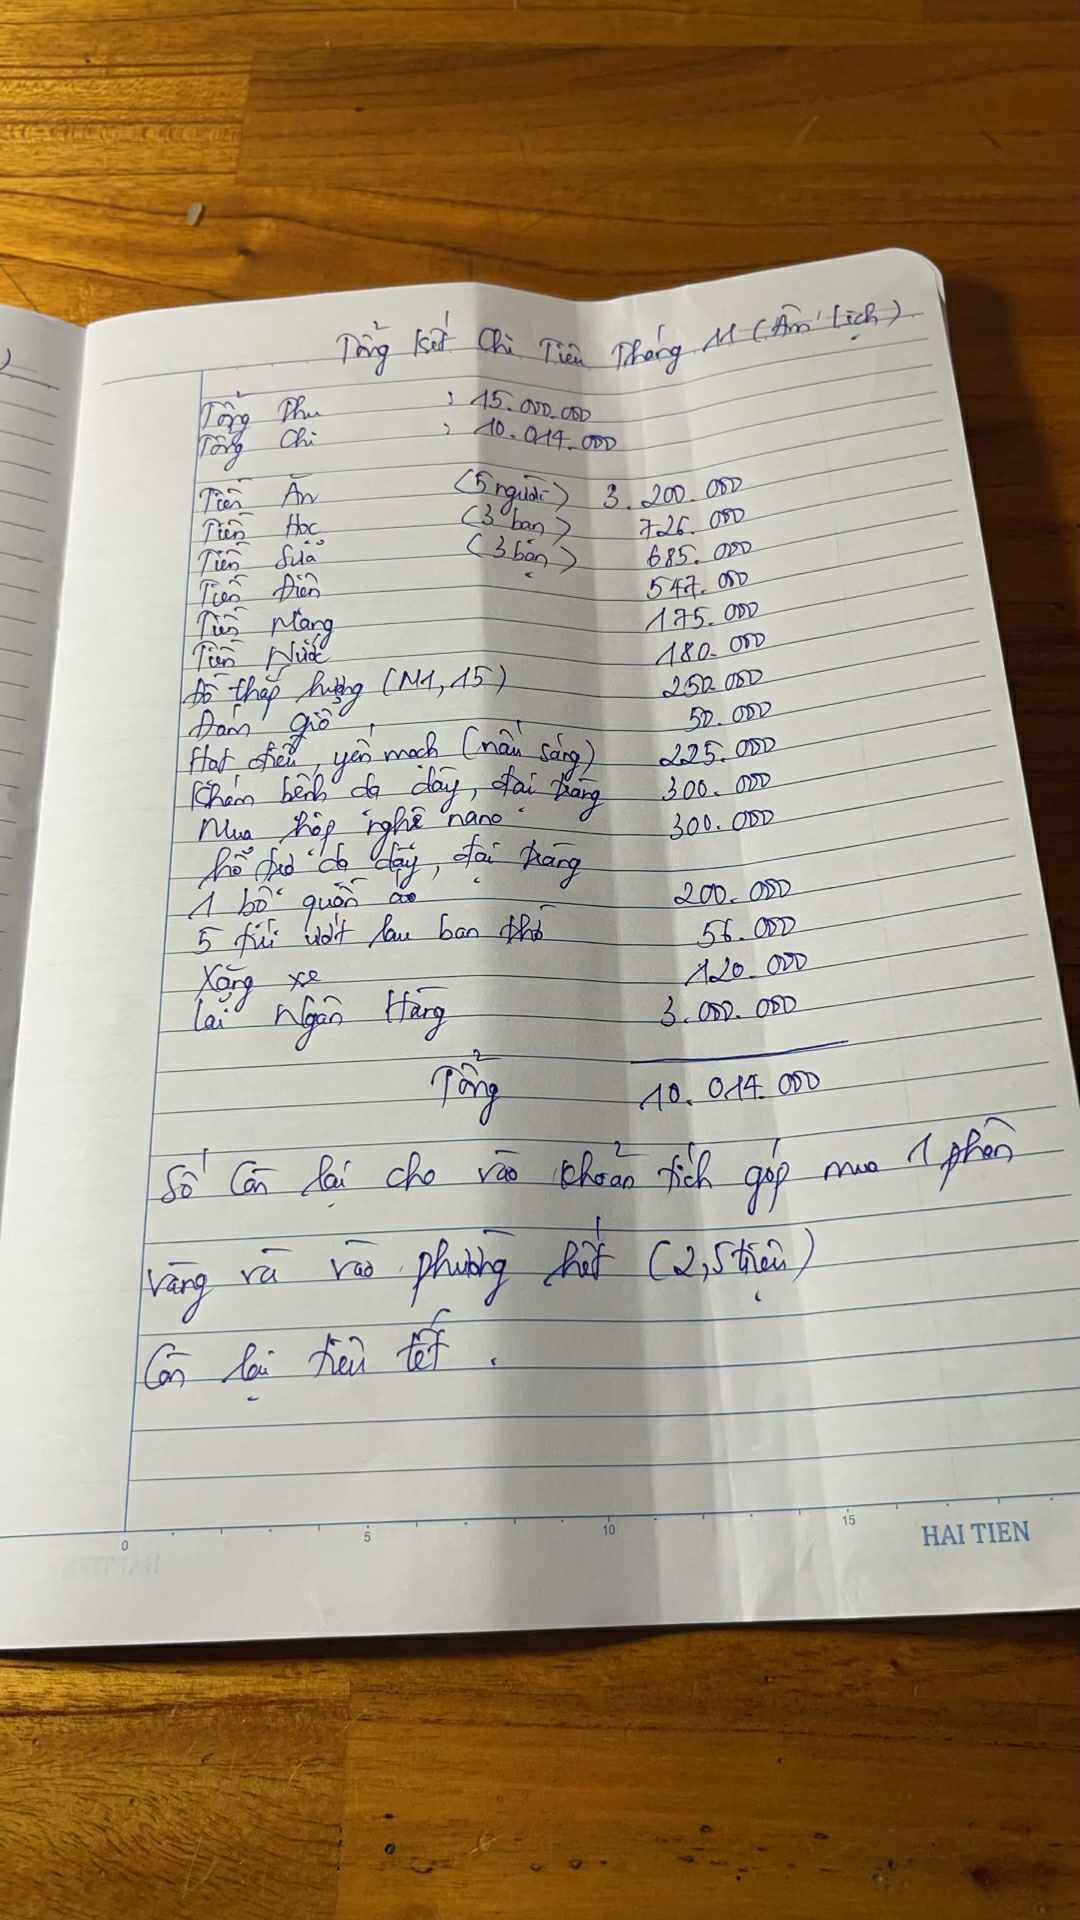 )
Tổng Kết Chi Tiêu Tháng 11 (Âm Lịch)
Tổng Thu : 15.000.000
Tổng Chi : 10.014.000
Tiền Ăn (5 người) 3.200.000
Tiền Học (3 bạn) 726.000
Tiền Sữa (3 bạn) 685.000
Tiền Điện 547.000
Tiền Mạng 175.000
Tiền Nước 180.000
Đồ thắp hương (M1, 15) 250.000
Đám giỗ 50.000
Hạt điều, yến mạch (nấu sáng) 225.000
Khám bệnh dạ dày, đại tràng 300.000
Mua hộp nghệ nano 300.000
hỗ trợ dạ dày, đại tràng
1 bộ quần áo 200.000
5 túi ướt lau ban thờ 56.000
Xăng xe 120.000
Lãi Ngân Hàng 3.000.000
Tổng 10.014.000
Số còn lại cho vào khoản tích góp mua 1 phân
vàng và vào phường hết (2,5 triệu)
Còn lại tiêu tết.
0 5 10 15
HAI TIEN